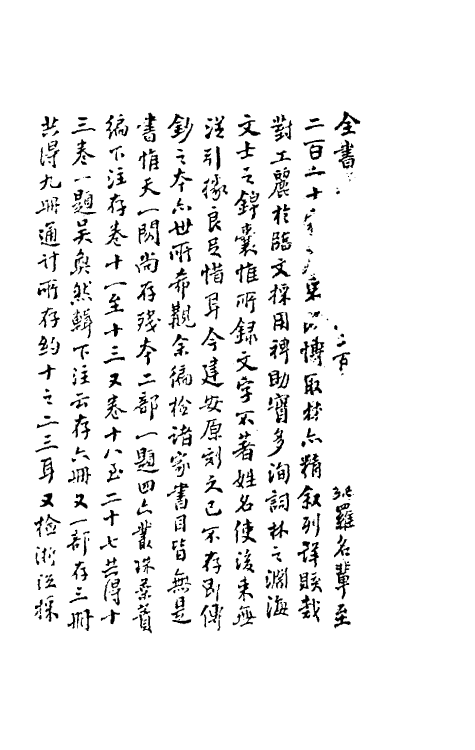 全書二百羅名輩至
二百二十博取材亦精叙列詳賅裁
對工麗於臨文採用裨助實多洵詞林之淵海
文士之錦囊惟所録文字不著姓名使後來無
從引據良足惜耳今建安原刻久已不存即傳
鈔之本亦世所希觀余徧檢諸家書目皆無是
書惟天一閣尚存殘本二部一題四六叢珠葉賁
編下注存卷十一至十三又卷十八至二十七共得十
三卷一題吳奐然輯下注云存六冊又一部存三冊
共得九冊通計所存約十之二三耳又檢浙江採